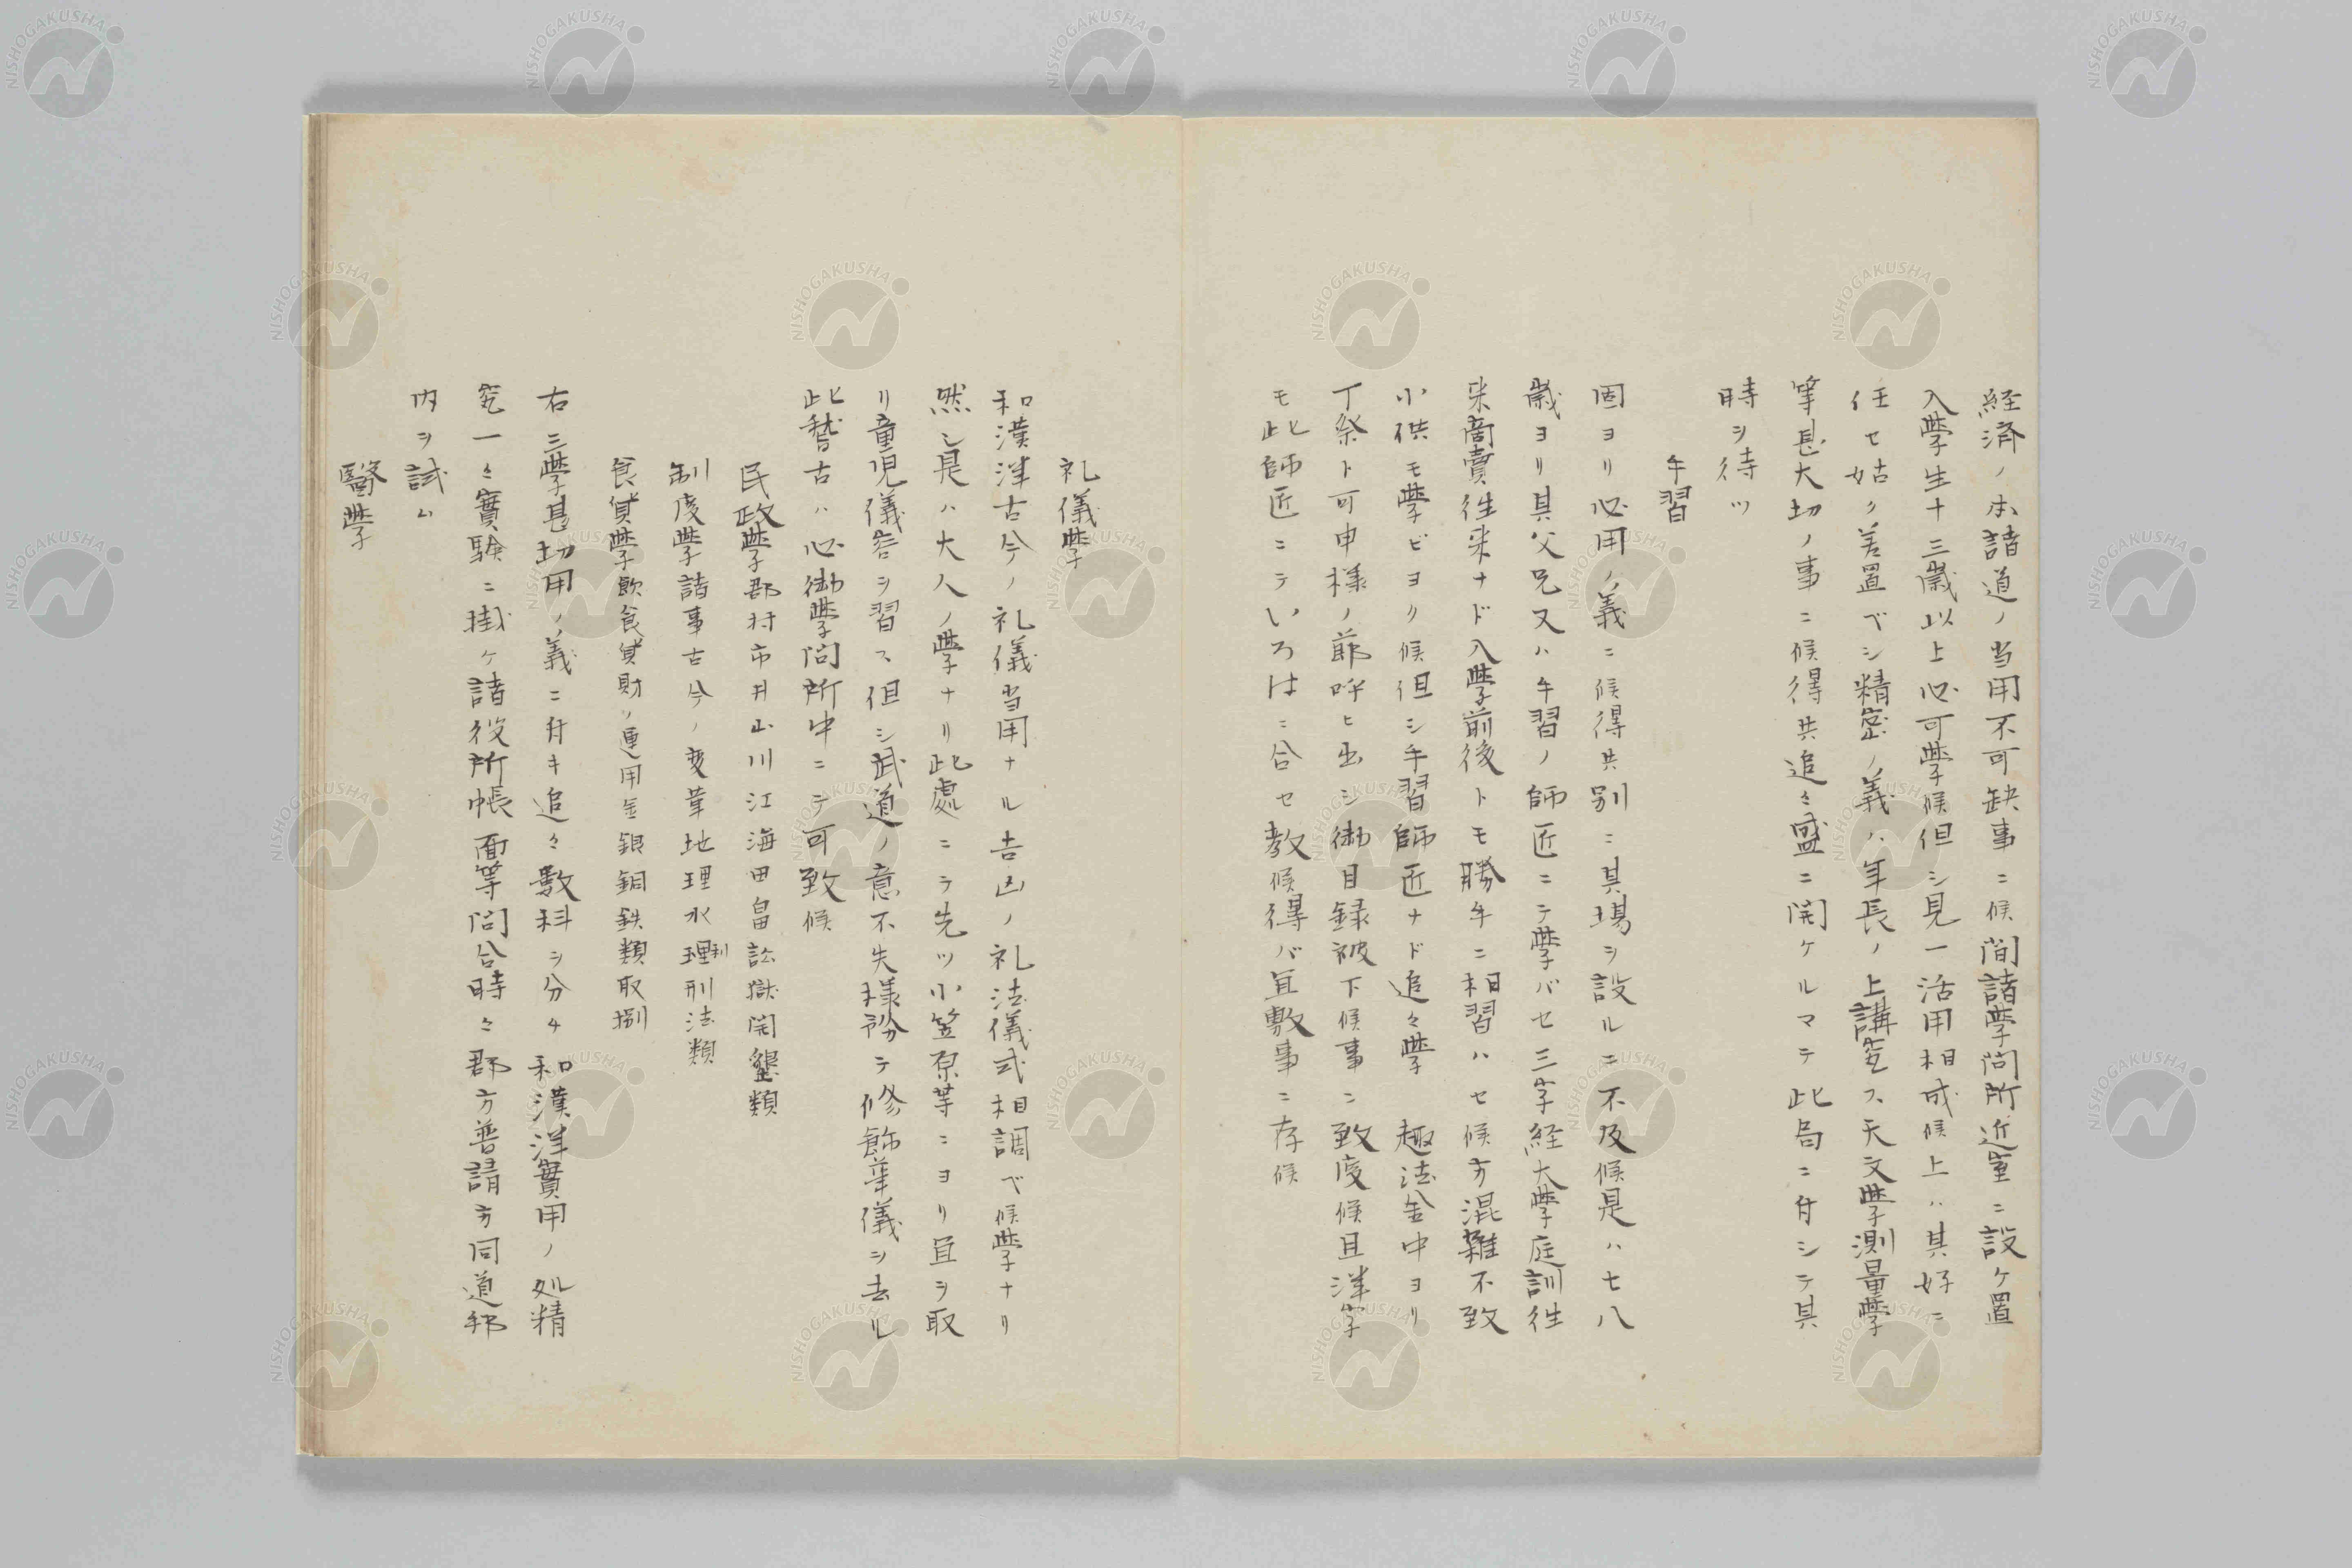 経済ノ本諸道ノ当用不可缺事ニ候間諸學問所近室ニ設ケ置
入學生十三歳以上必可學候但シ見一活用相成候上ハ其好ニ
任セ姑ク差置ベシ精密ノ義ハ年長ノ上講究ス天文學測量學
筆甚大切ノ事ニ候得共追々盛ニ開ケルマテ此局ニ付シテ其
時ヲ待ツ
手習
固ヨリ必用ノ義ニ候得共別ニ其場ヲ設ルニ不及候是ハ七八
歳ヨリ其父兄又ハ手習ノ師匠ニテ學バセ三字経大學庭訓往
来商賣往来ナド入學前後トモ勝手ニ相習ハセ候方混雑不致
小供モ學ビヨク候但シ手習師匠ナド追々學 趣法金中ヨリ
丁祭ト可申様ノ節呼ヒ出シ御目録被下候事ニ致度候且洋字
モ此師匠ニテいろはニ合セ教候得バ宜敷事ニ存候
礼儀學
和漢洋古今ノ礼儀当用ナル吉凶ノ礼法儀式相調ベ候學ナリ
然シ是ハ大人ノ學ナリ此處ニテ先ツ小笠原等ニヨリ宜ヲ取
リ童児儀容ヲ習ス但シ武道ノ意不失様務テ修飾華儀ヲ去ル
此稽古ハ必御學問所中ニテ可致候
民政學郡村市井山川江海田畠訟獄開墾類
制度學諸事古今ノ変革地理水理利刑法類
食貨學飲食貨財ノ運用金銀銅鉄類取捌
右三學甚切用ノ義ニ付キ追々數科ヲ分チ和漢洋實用ノ処精
究一々實験ニ掛ケ諸役所帳面等問合時々郡方普請方同道邦
内ヲ試ム
醫學